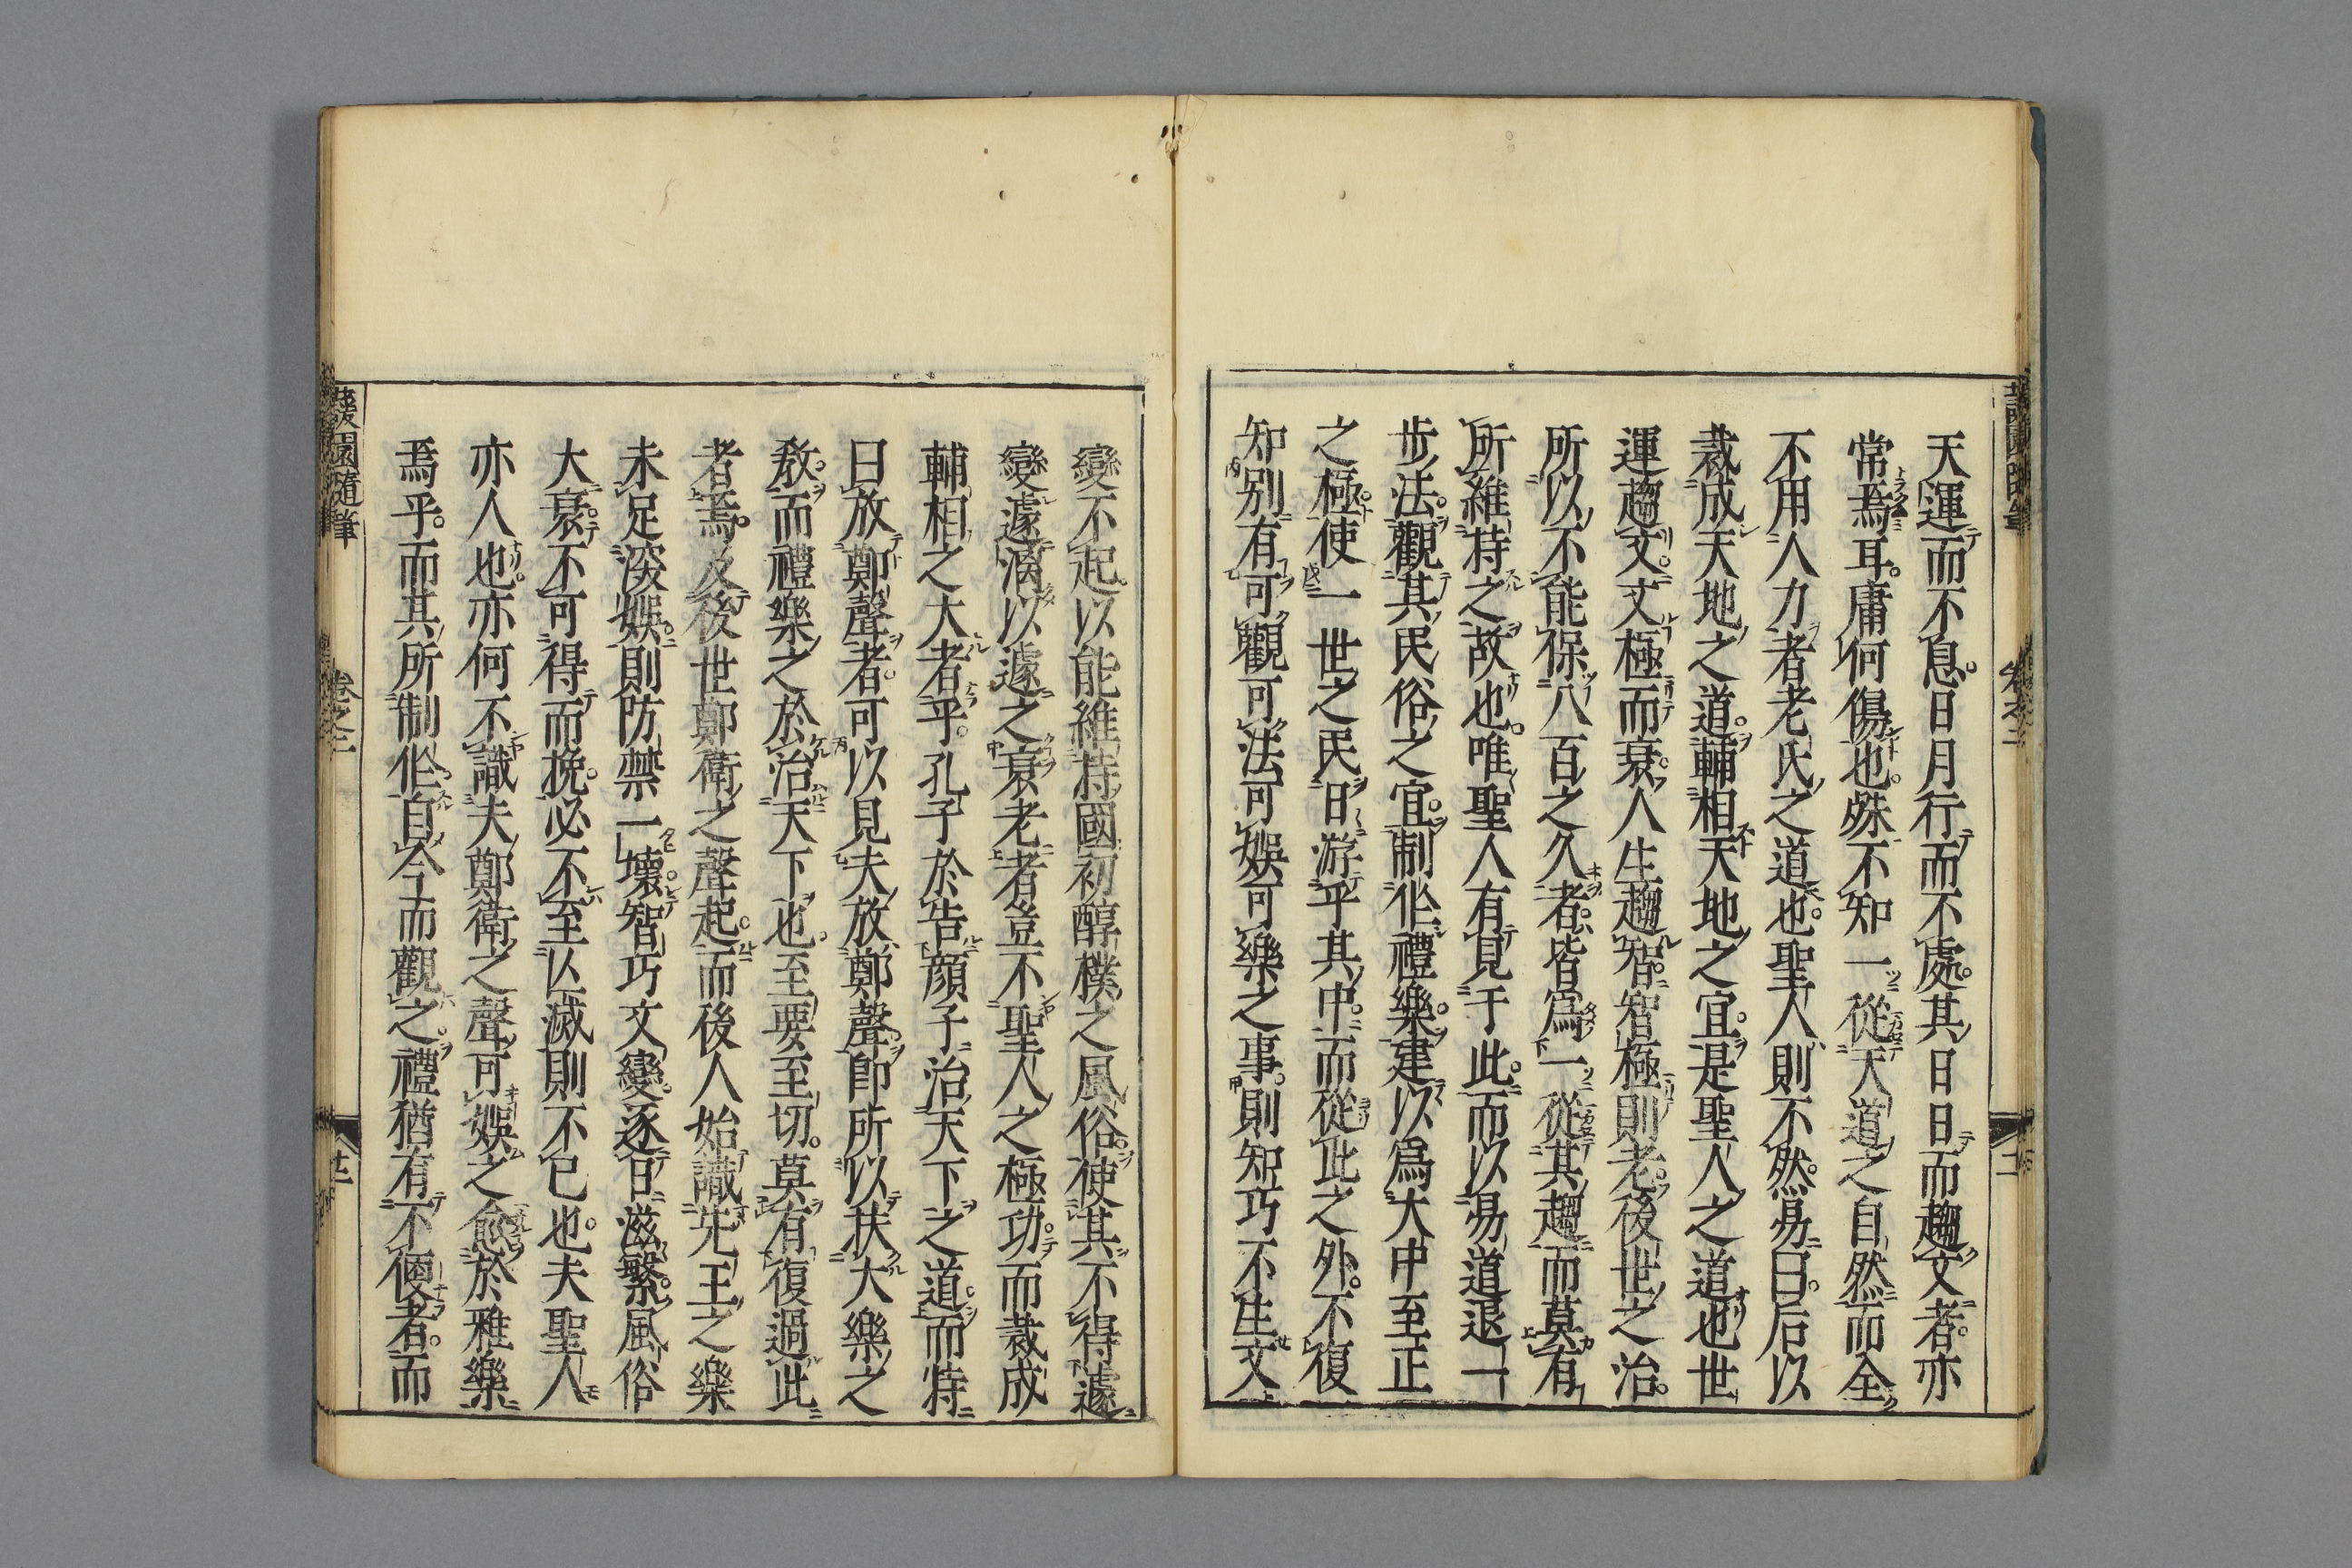 天運而不息日月行而不處其日日而趨文者亦
常焉耳庸何傷也殊不知一從天道之自然而全
不用人力者老氏之道也聖人則不然易曰后以
裁成天地之道輔相天地之宜是聖人之道也世
運趨文文極而衰人生趨智智極則老後世之治
所以不能保八百之久者皆爲一從其趨而莫有
所維持之故也唯聖人有見于此而以易道退一
步法觀其民俗之宜制作禮樂建以爲大中至正
之極使一世之民日游乎其中而從此之外不復
知別有可觀可法可娯可樂之事則知巧不生文
變不起以能維持國初醇樸之風俗使其不得遽
變遽漓以遽之衰老者豈不聖人之極功而裁成
輔相之大者乎孔子於告顔子治天下之道而特
曰放鄭聲者可以見夫放鄭聲卽所以扶大樂之
敎而禮樂之於治天下也至要至切莫有復過此
者焉及後世鄭衛之聲起而後人始識先王之樂
未足深娯則防禁一壞智巧文變逐日滋繁風俗
大衰不可得而挽必不至仏滅則不已也夫聖人
亦人也亦何不識夫鄭衛之聲可娯之愈於雅樂
焉乎而其所制作自今而觀之禮猶有不便者而
蘐園隨筆
卷之二